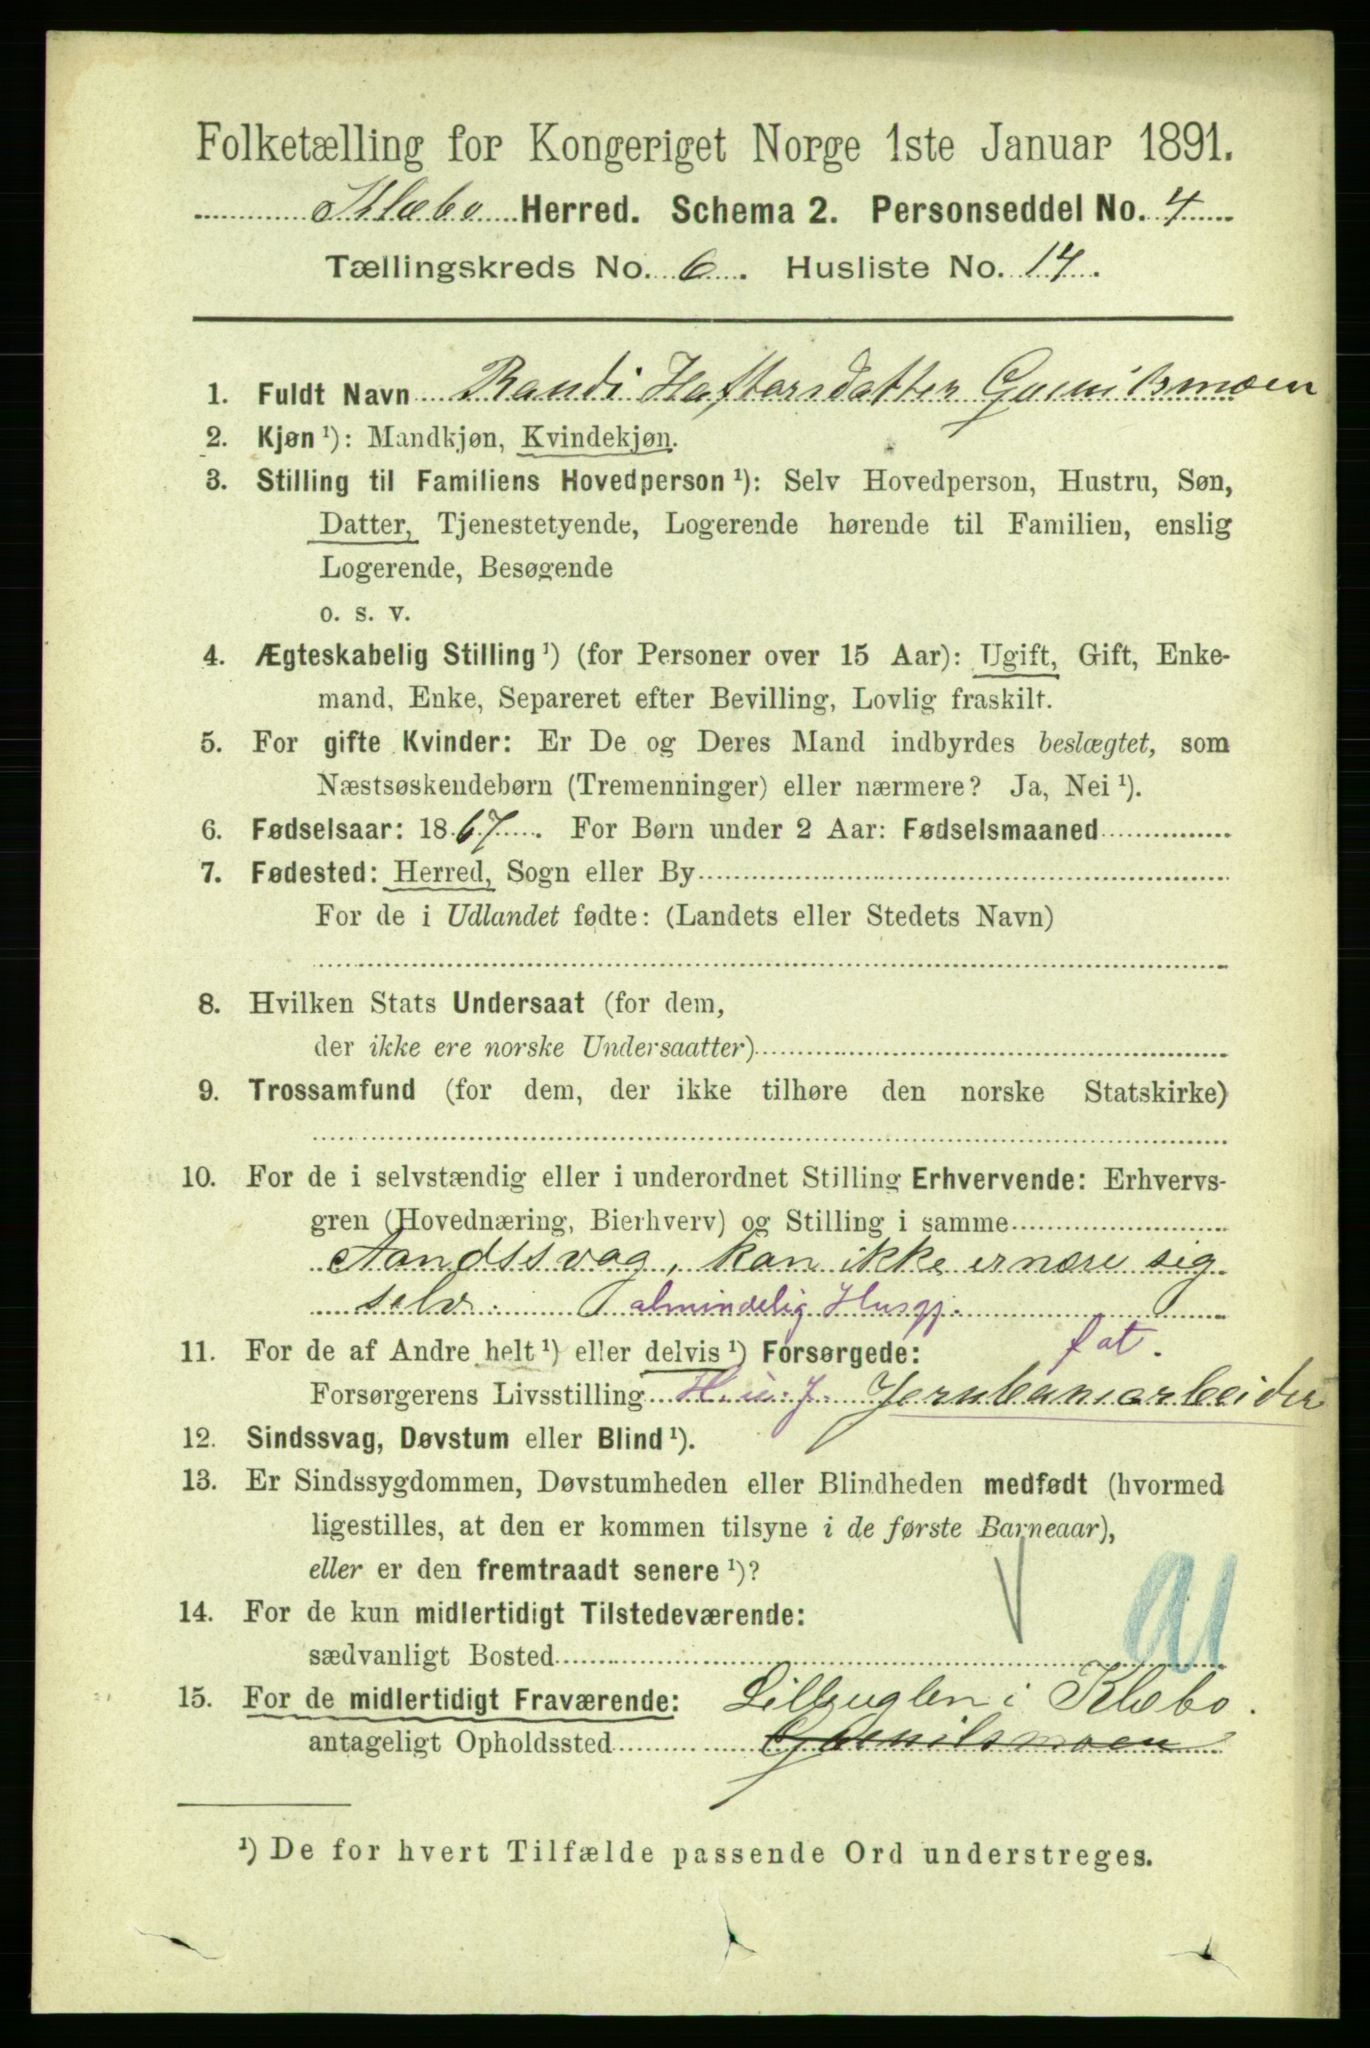 Folketælling for Kongeriget Norge 1ste Januar 1891.
Klæbo Herred. Schema 2. Personseddel No. 4
Tællingskreds No. 6. Husliste No. 14.
1. Fuldt Navn Randi Haftorsdatter
2. Kjøn ¹): Mandkjøn, Kvindekjøn.
3. Stilling til Familiens Hovedperson ¹): Selv Hovedperson, Hustru, Søn,
Datter, Tjenestetyende, Logerende hørende til Familien, enslig
Logerende, Besøgende
o. s. v.
4. Ægteskabelig Stilling ¹) (for Personer over 15 Aar): Ugift, Gift, Enke-
mand, Enke, Separeret efter Bevilling, Lovlig fraskilt.
5. For gifte Kvinder: Er De og Deres Mand indbyrdes beslægtet, som
Næstsøskendebørn (Tremenninger) eller nærmere? Ja, Nei ¹).
6. Fødselsaar: 1867. For Børn under 2 Aar: Fødselsmaaned
7. Fødested: Herred, Sogn eller By
For de i Udlandet fødte: (Landets eller Stedets Navn)
8. Hvilken Stats Undersaat (for dem,
der ikke ere norske Undersaatter)
9. Trossamfund (for dem, der ikke tilhøre den norske Statskirke)
10. For de i selvstændig eller i underordnet Stilling Erhvervende: Erhvervs-
gren (Hovednæring, Bierhverv) og Stilling i samme
Aandssvag, kan ikke ernære sig
selv. almindelig Husgj.
11. For de af Andre helt ¹) eller delvis ¹) Forsørgede: fat.
Forsørgerens Livsstilling H. u. J. Jernbanearbeider
12. Sindssvag, Døvstum eller Blind ¹).
13. Er Sindssygdommen, Døvstumheden eller Blindheden medfødt (hvormed
ligestilles, at den er kommen tilsyne i de første Barneaar),
eller er den fremtraadt senere ¹)?
14. For de kun midlertidigt Tilstedeværende:
sædvanligt Bosted
15. For de midlertidigt Fraværende: Lilleuglen i Klæbo.
antageligt Opholdssted
¹) De for hvert Tilfælde passende Ord understreges.